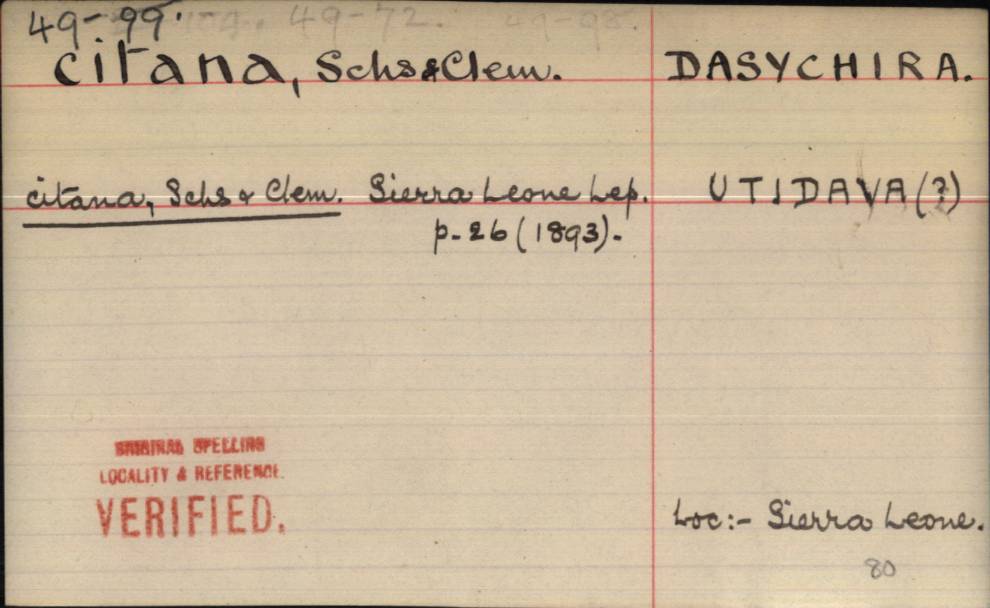 49-99. 49-72. 49-98.
citana, Schs & Clem. DASYCHIRA.
citana, Schs & Clem. Sierra Leone Lep. UTIDAVA (?)
p. 26 (1893).
ORIGINAL SPELLING
LOCALITY & REFERENCE.
VERIFIED.
Loc:- Sierra Leone.
80